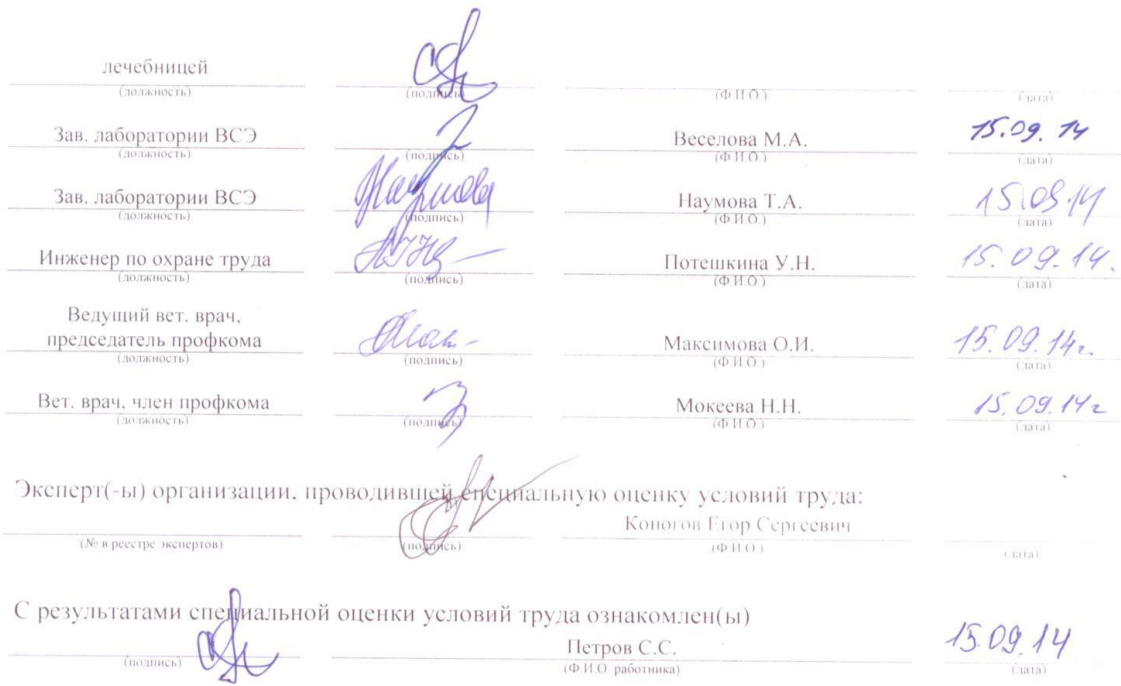 лечебницей
(должность) (подпись) (Ф.И.О.) (дата)
Зав. лаборатории ВСЭ Веселова М.А. 15.09.14
(должность) (подпись) (Ф.И.О.) (дата)
Зав. лаборатории ВСЭ Наумова Т.А. 15.09.14
(должность) (подпись) (Ф.И.О.) (дата)
Инженер по охране труда Потешкина У.Н. 15.09.14.
(должность) (подпись) (Ф.И.О.) (дата)
Ведущий вет. врач,
председатель профкома Максимова О.И. 15.09.14г.
(должность) (подпись) (Ф.И.О.) (дата)
Вет. врач, член профкома Мокеева Н.Н. 15.09.14г
(должность) (подпись) (Ф.И.О.) (дата)
Эксперт(-ы) организации, проводившей специальную оценку условий труда:
Коногов Егор Сергеевич
(№ в реестре экспертов) (подпись) (Ф.И.О.) (дата)
С результатами специальной оценки условий труда ознакомлен(ы)
Петров С.С. 15.09.14
(подпись) (Ф.И.О. работника) (дата)